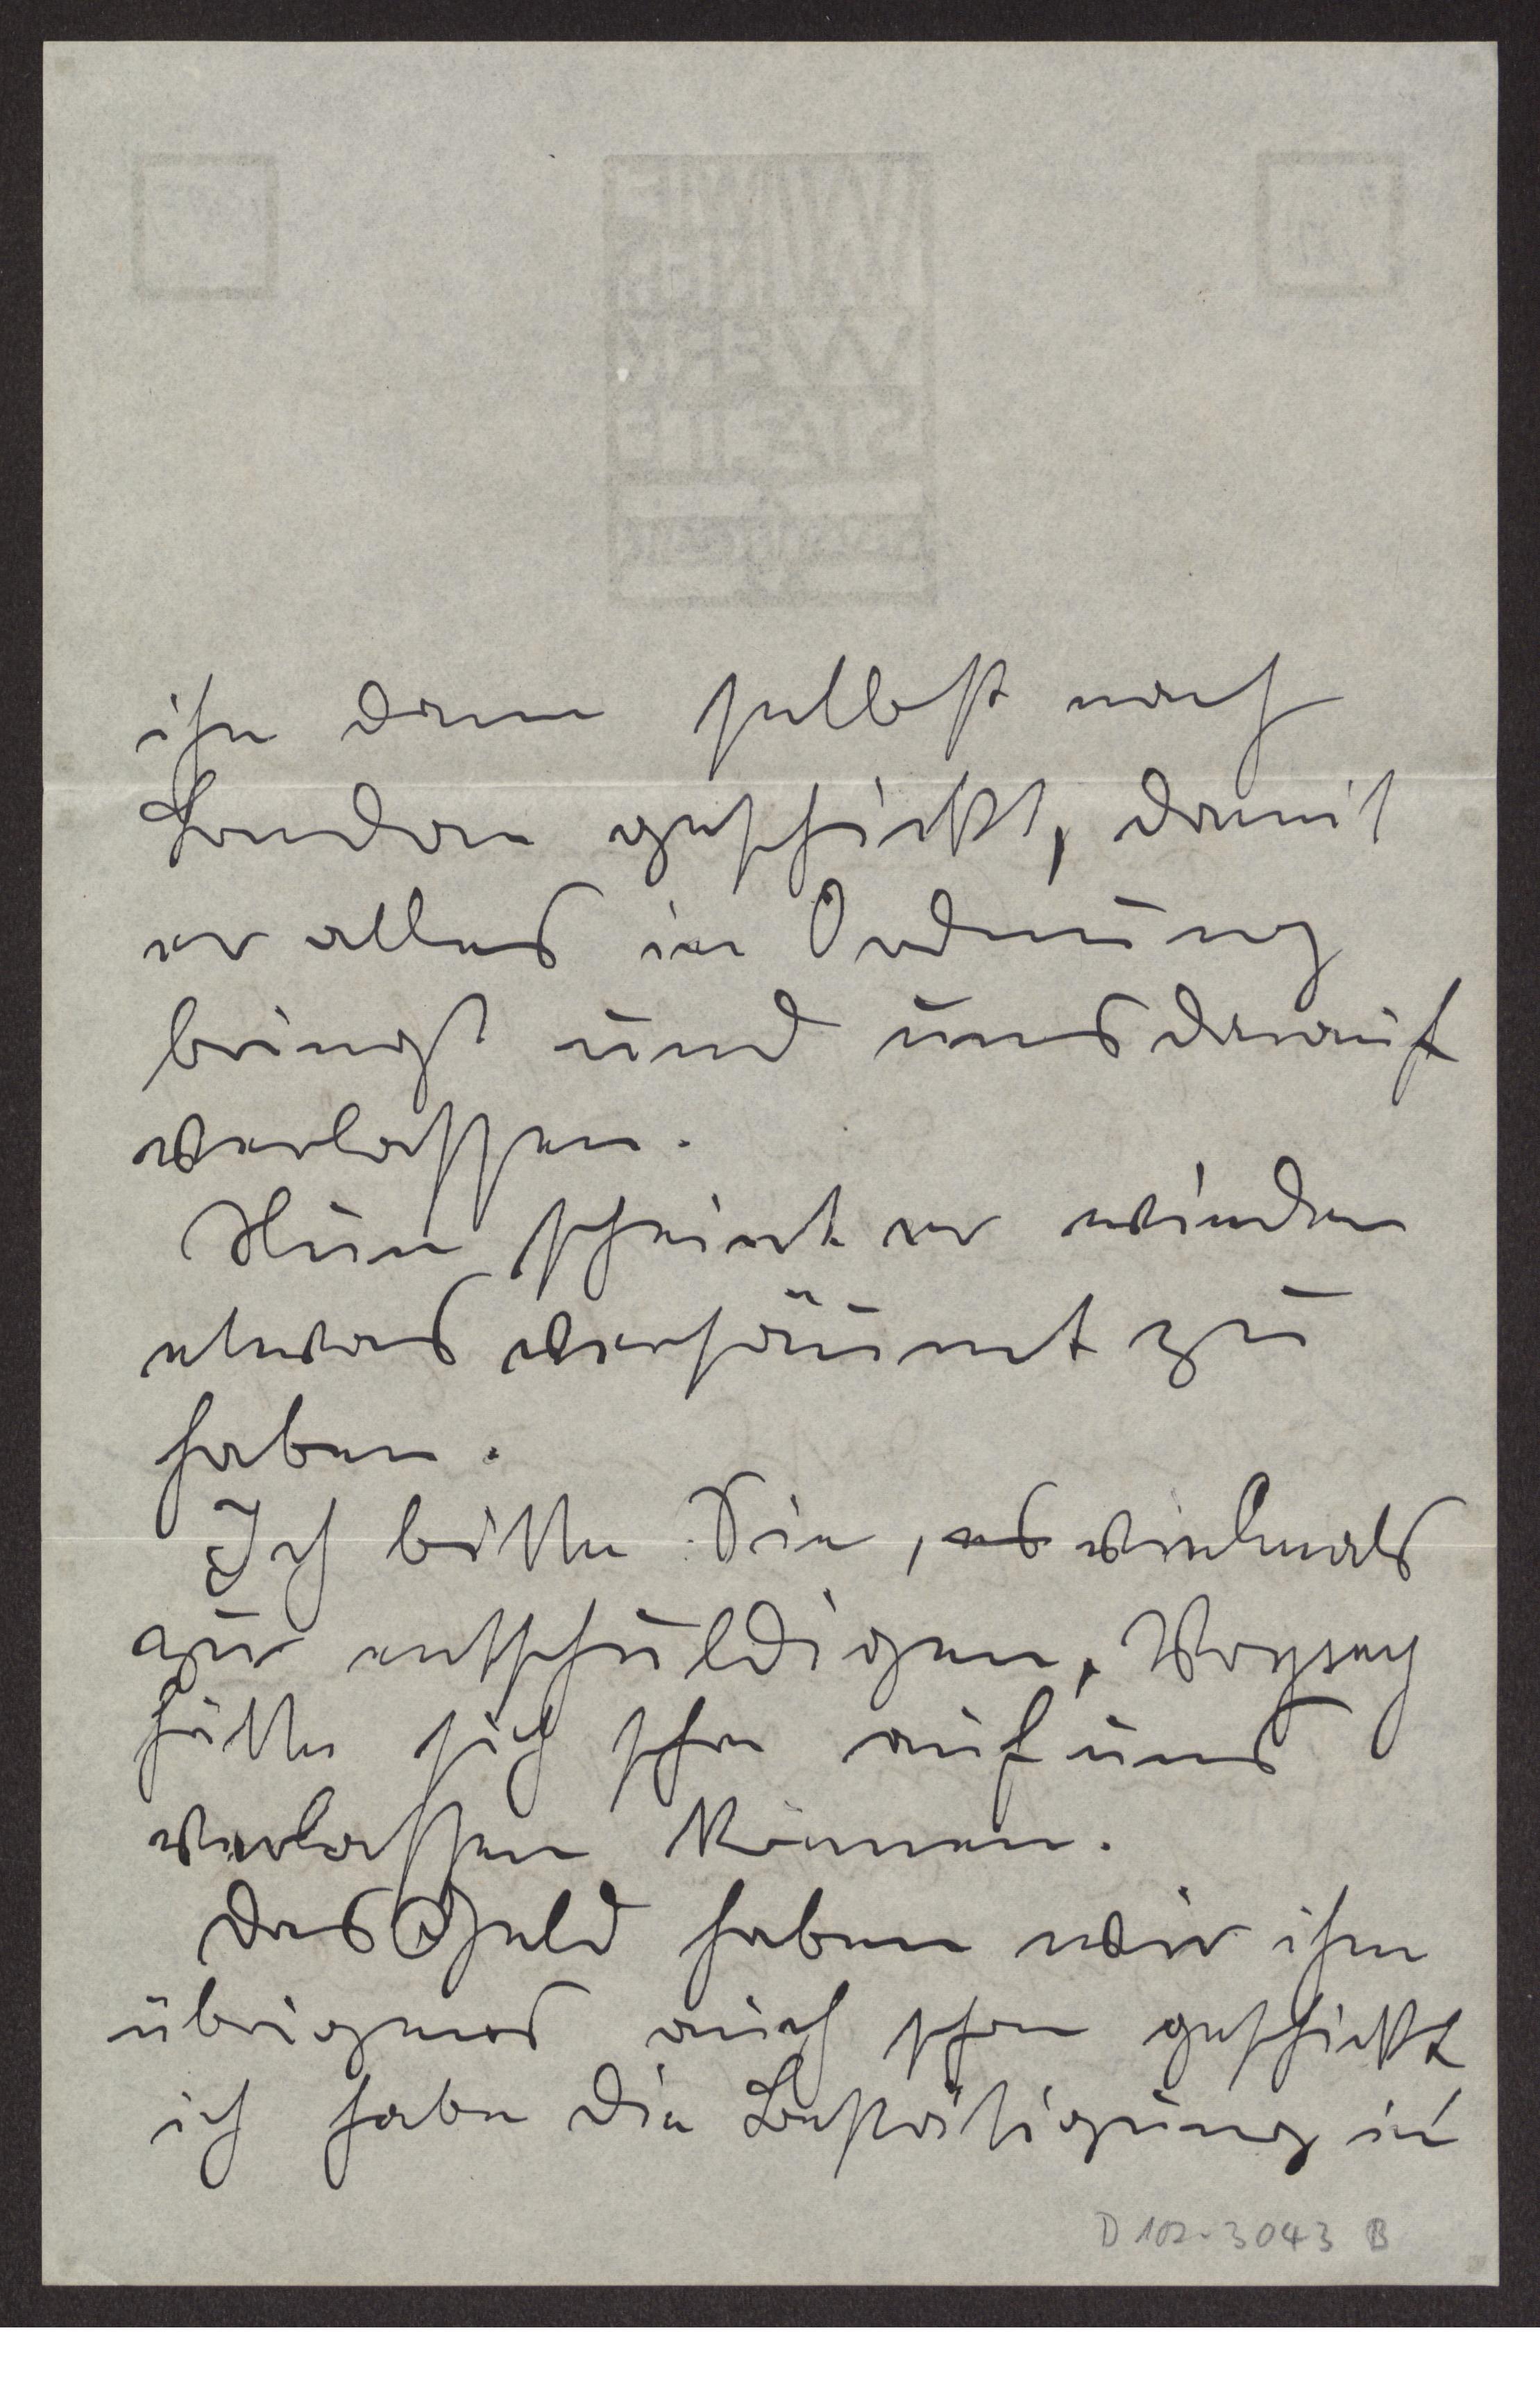 ihn dann selbst nach
London geschickt, damit
er alles in Ordnung
bringt und uns darauf
verlassen.
Nun scheint er wieder
etwas versäumt zu
haben.
Ich bitte Sie, es vielmals
zu entschuldigen, Voysey
hätte sich schon auf uns
verlassen können.
Das Geld haben wir ihm
übrigens auch schon geschickt
ich habe die Bestätigung in
D 102-3043 B